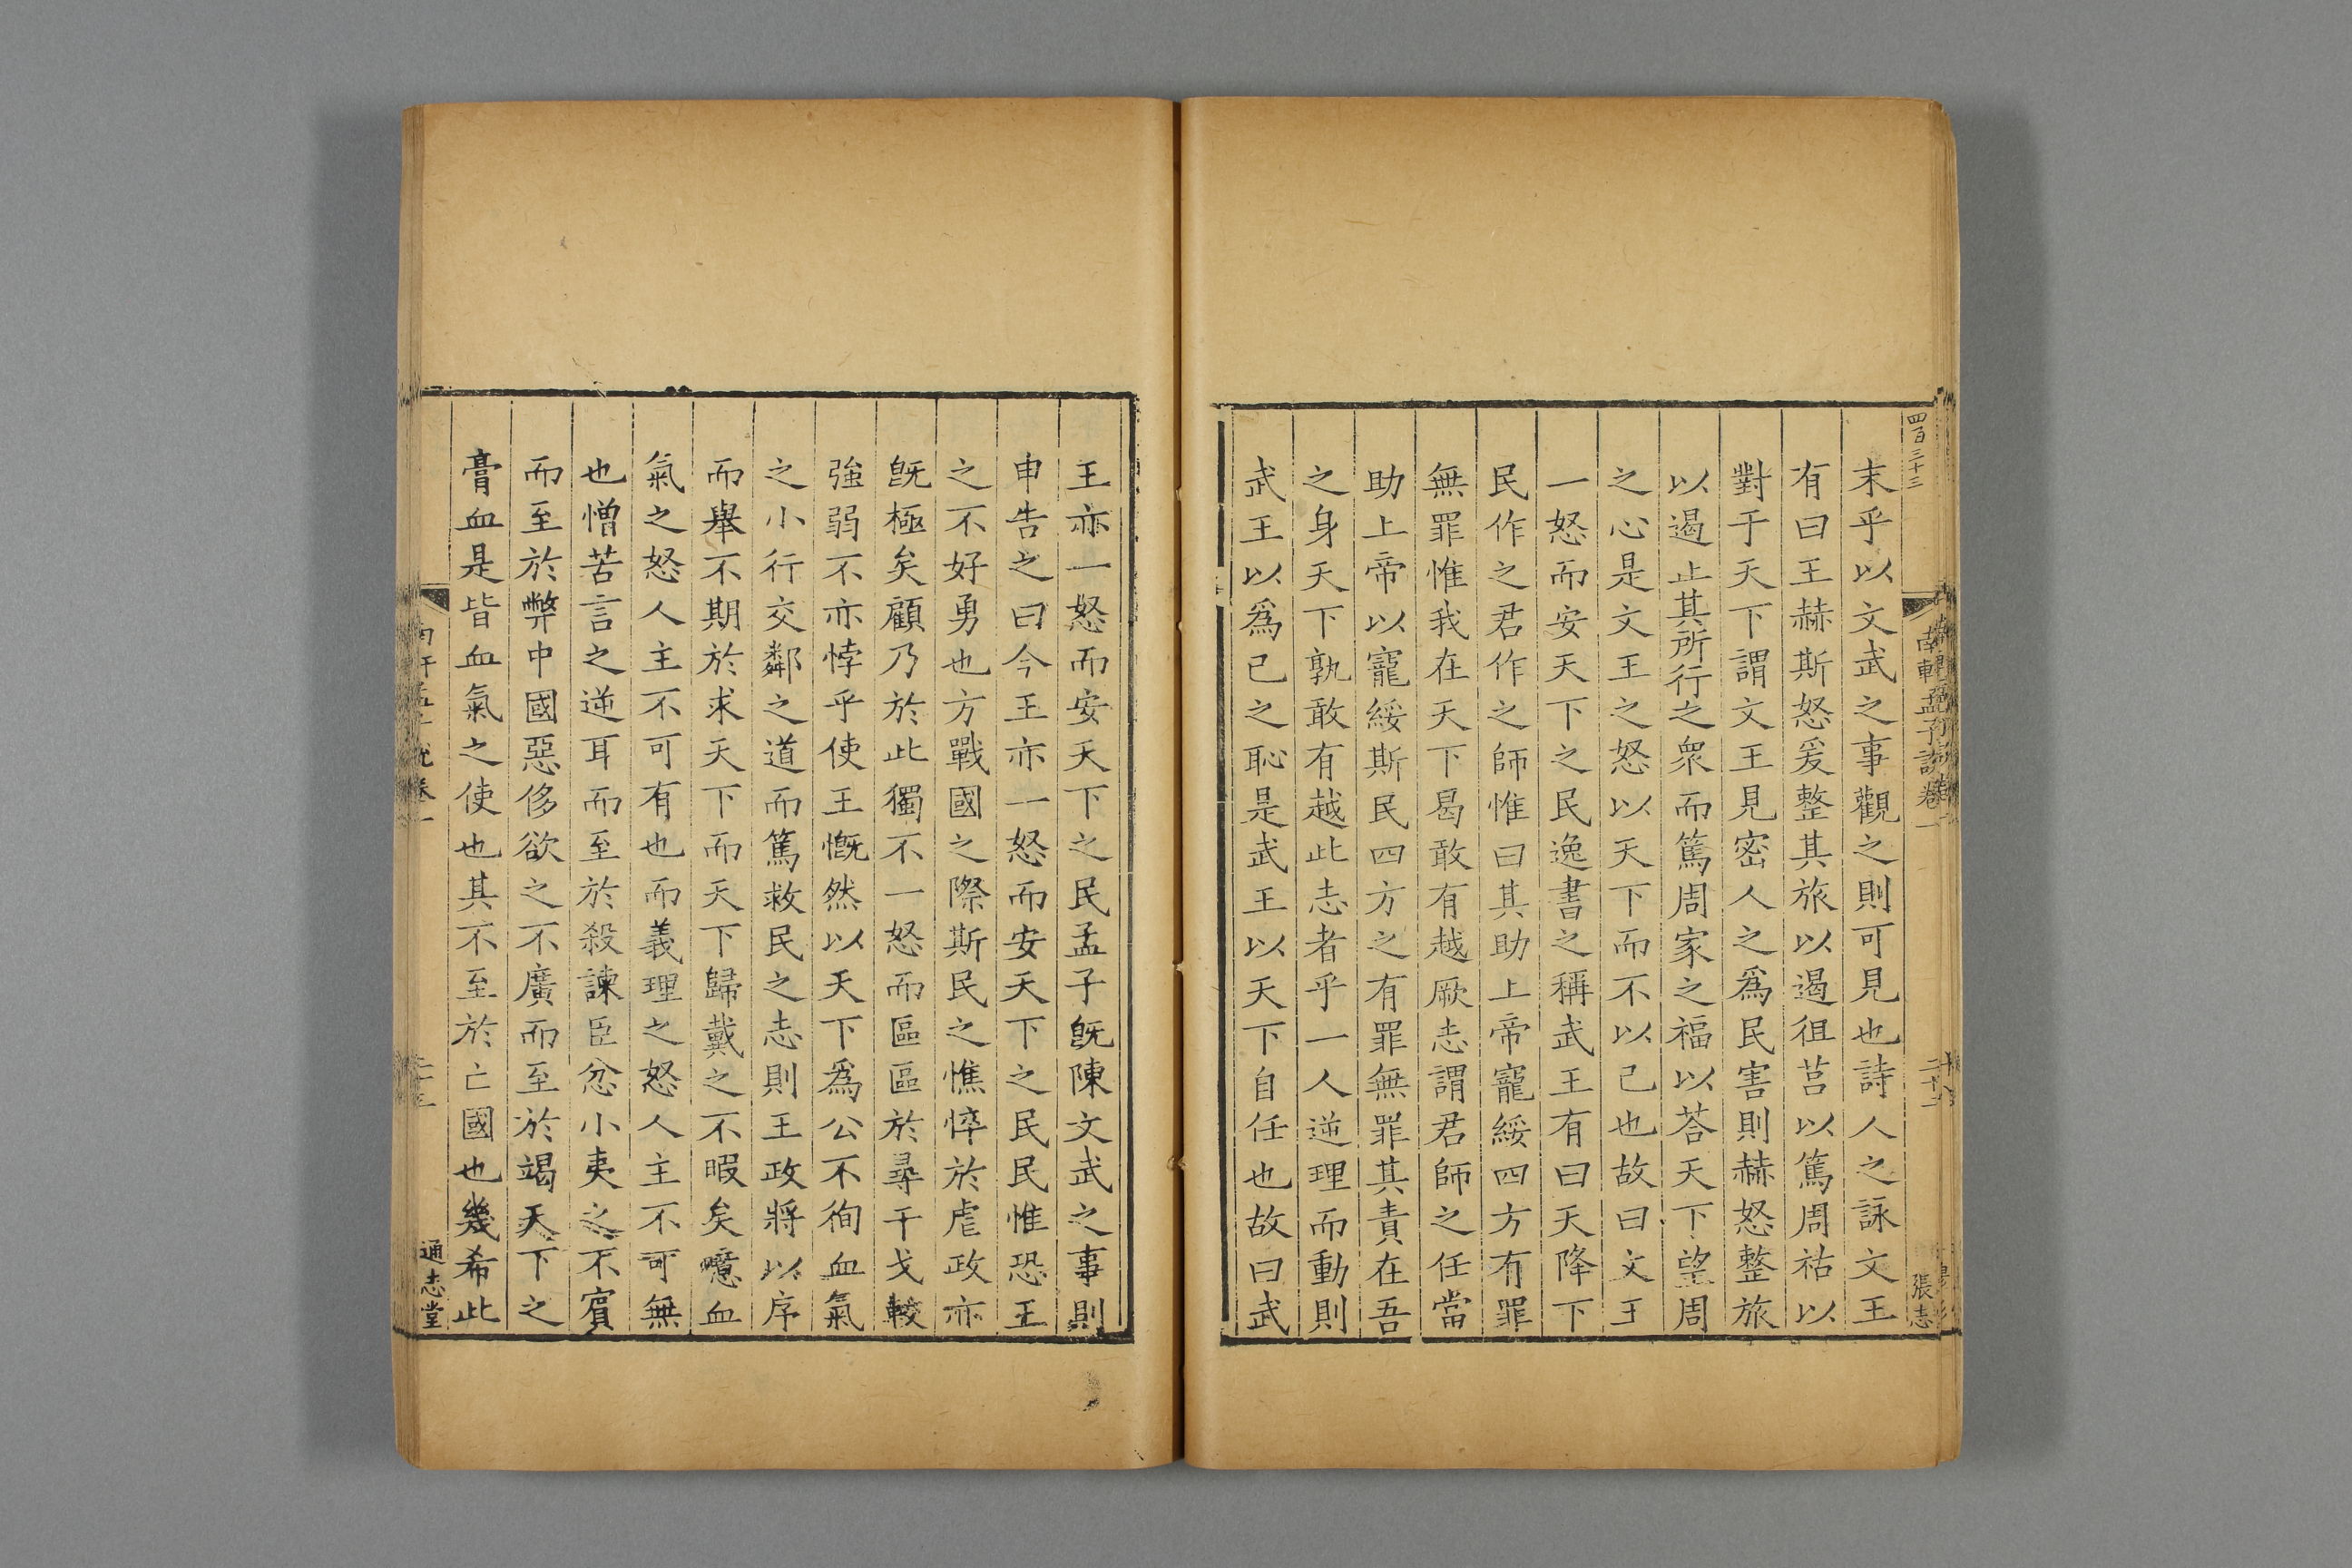 四百三十三
南軒孟子說卷一
張志
末乎以文武之事觀之則可見也詩人之詠文王
有曰王赫斯怒爰整其旅以遏徂莒以篤周祜以
對于天下謂文王見密人之為民害則赫怒整旅
以遏止其所行之衆而篤周家之福以荅天下望周
之心是文王之怒以天下而不以己也故曰文王
一怒而安天下之民逸書之稱武王有曰天降下
民作之君作之師惟曰其助上帝寵綏四方有罪
無罪惟我在天下曷敢有越厥志謂君師之任當
助上帝以寵綏斯民四方之有罪無罪其責在吾
之身天下孰敢有越此志者乎一人逆理而動則
武王以為已之恥是武王以天下自任也故曰武
王亦一怒而安天下之民孟子旣陳文武之事則
申告之曰今王亦一怒而安天下之民民惟恐王
之不好勇也方戰國之際斯民之憔悴於虐政亦
旣極矣顧乃於此獨不一怒而區區於尋干戈較
強弱不亦悖乎使王慨然以天下為公不徇血氣
之小行交鄰之道而篤救民之志則王政將以序
而舉不期於求天下而天下歸戴之不暇矣噫血
氣之怒人主不可有也而義理之怒人主不可無
也憎苦言之逆耳而至於殺諫臣忿小夷之不賓
而至於弊中國惡侈欲之不廣而至於竭天下之
膏血是皆血氣之使也其不至於亡國也幾希此
通志堂